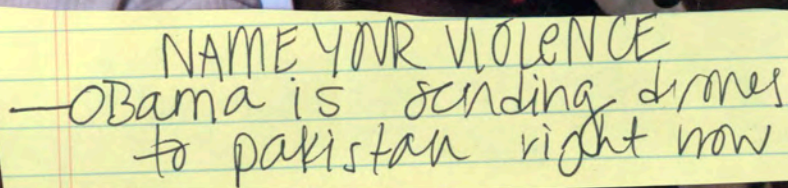 NAME YOUR VIOLENCE
—OBama is sending drones
to pakistan right now